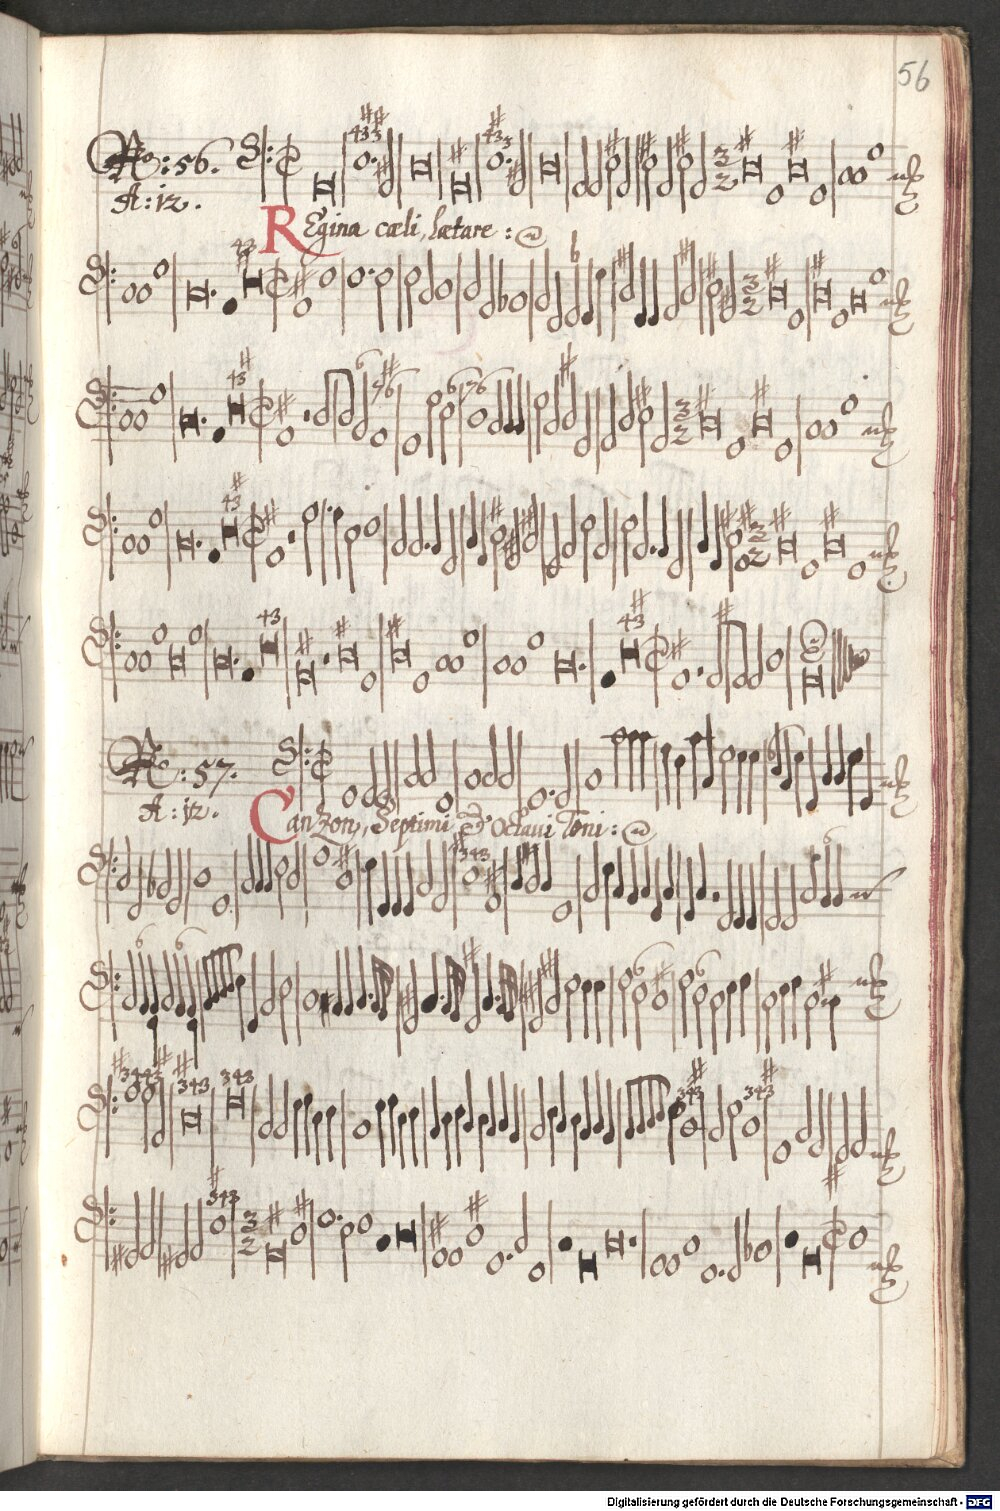 56
No: 56.
A: 12.
REgina cæli, lætare:
No: 57.
A: 12.
Canzon, Septimi & Octaui Toni:
Digitalisierung gefördert durch die Deutsche Forschungsgemeinschaft - DFG